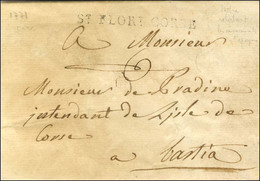 1771
ST FLORT CORSE
A Monsieur
Monsieur de Pradine
intendant de L'isle de
Corse
a Bastia